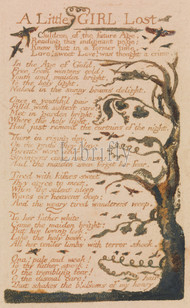 A Little GIRL Lost
Children of the future Age,
Reading this indignant page;
Know that in a former time,
Love! sweet Love! was thought a crime.
In the Age of Gold,
Free from winters cold:
Youth and maiden bright,
To the holy light,
Naked in the sunny beams delight.
Once a youthful pair
Fill'd with softest care:
Met in garden bright,
Where the holy light,
Had just removd the curtains of the night.
There in rising day,
On the grass they play:
And the maiden soon forgot her fear.
Tired with kisses sweet
They agree to meet,
When the silent sleep
Waves o'er heavens deep:
And the weary tired wanderers weep.
To her father white
Came the maiden bright:
But his loving look,
Like the holy book,
All her tender limbs with terror shook.
Ona! pale and weak!
To thy father speak:
O the trembling fear!
O the dismal care!
That shakes the blossoms of my hoary hair